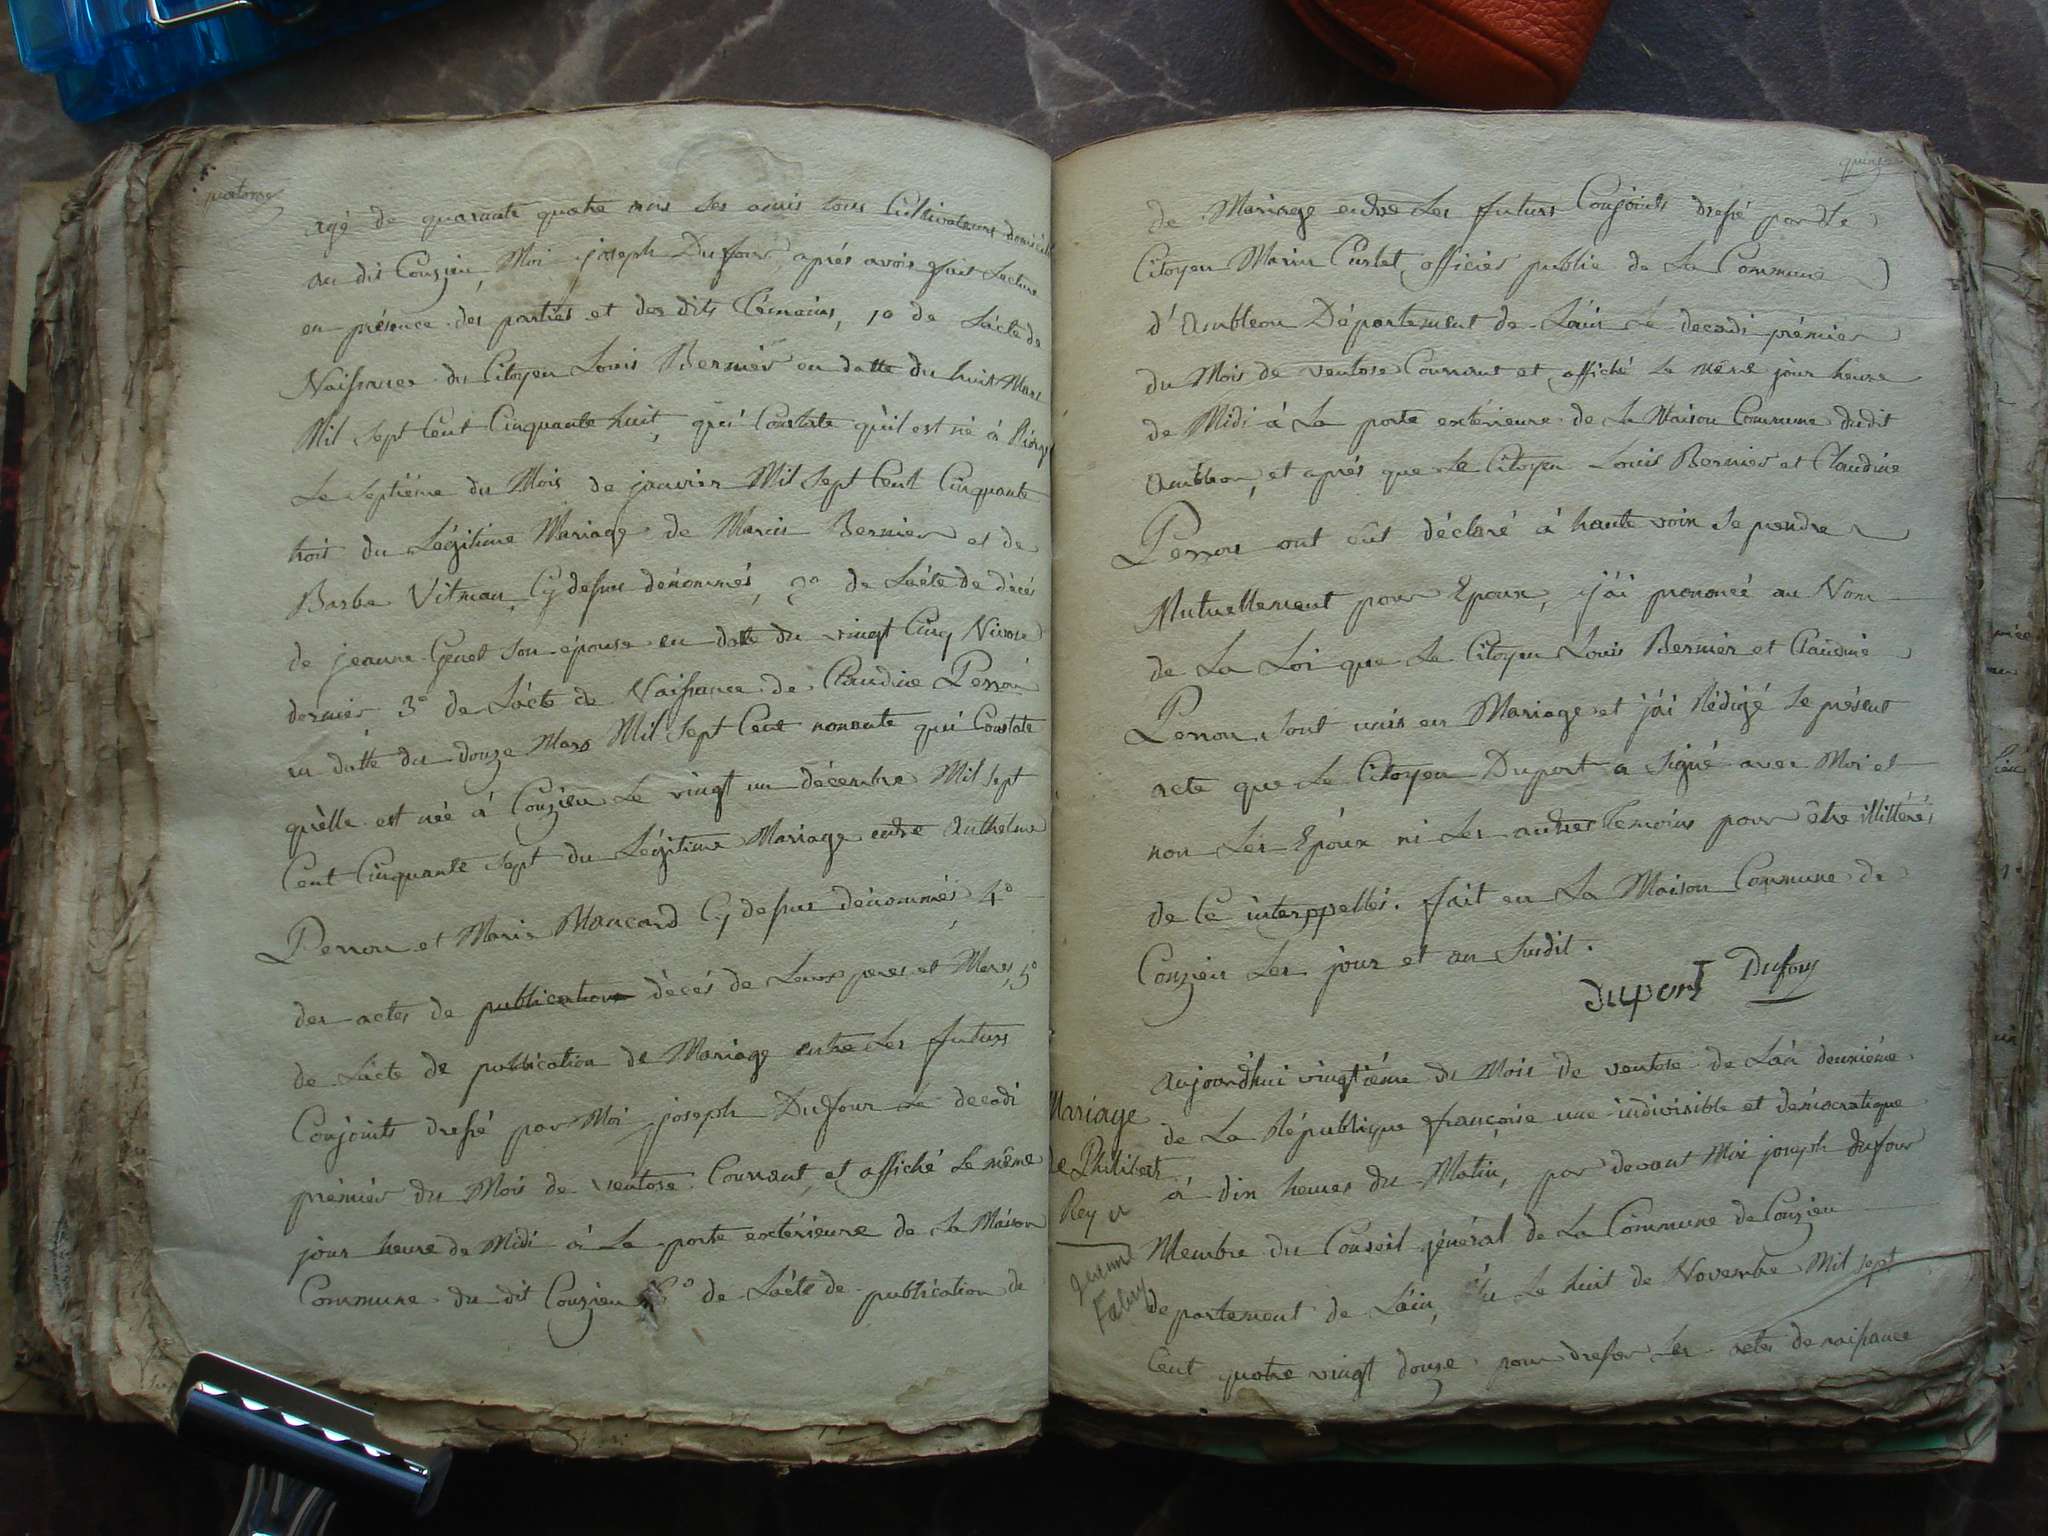 quatorze
agé de quarante quatre ans ses amis tous Cultivateurs domiciliés
au dit Conzieu, Moi joseph Dufour, aprés avoir fait lecture
en présence des parties et des dits témoins, 1o de L'acte de
Naissance du Citoyen Louis Bernier en datte du huit Mars
Mil sept Cent Cinquante huit, qui Constate qu'il est né à
Le septiéme du Mois de janvier Mil Sept Cent Cinquante
huit du Légitime Mariage de Marin Bernier et de
Barbe Vitman, Cy dessus dénommés, 2o de L'acte de décés
de jeanne Genet son épouse en datte du vingt Cinq Nivose
dernier 3o de L'acte de Naissance de Claudine Perron
en datte du douze Mars Mil Sept Cent nonante qui Constate
qu'elle est née à Conzieu Le vingt un décembre Mil sept
Cent Cinquante Sept du Légitime Mariage entre Anthelme
Perron et Marie Mancard Cy dessus dénommés, 4o
des actes de publication décés de Leurs peres et Meres, 5o
de L'acte de publication de Mariage entre Les futurs
Conjoints dressé par Moi joseph Dufour Le decadi
prémier du Mois de ventose Courrant, et affiché Le même
jour heure de Midi à La porte extérieure de La Maison
Commune du dit Conzieu 6o de L'acte de publication de
quinze
de Mariage entre Les futurs Conjoints dressé par Le
Citoyen Marin Curlet, officier public de La Commune
d'Ambleon Département de L'ain Le decadi prémier
du Mois de ventose Courrant et affiché Le même jour heure
de Midi à La porte extérieure de La Maison Commune dudit
Ambleon, et aprés que Le Citoyen Louis Bernier et Claudine
Perron ont eut déclaré à haute voix Se prendre
Mutuellement pour Epoux, j'ai prononcé au Nom
de La Loi que Le Citoyen Louis Bernier et Claudine
Perron, Sont unis en Mariage et j'ai Rédigé Le présent
acte que Le Citoyen Duport a Signé avec Moi et
non Les Epoux ni Les autres Temoins pour être illittérés
de Ce interppellés. fait en La Maison Commune de
Conzieu Les jour et an Susdit.
duport Dufour
Mariage
de Philibert
Rey et
Jeanne
Fabry
Aujourd'hui vingtiéme du Mois de ventose de L'an deuxiéme
de La République françoise une indivisible et démocratique
à dix heures du Matin, par devant Moi joseph Dufour
Membre du Conseil général de La Commune de Conzieu
departement de L'ain, élu Le huit de Novembre Mil sept
Cent quatre vingt douze pour dresser Les actes de naissance